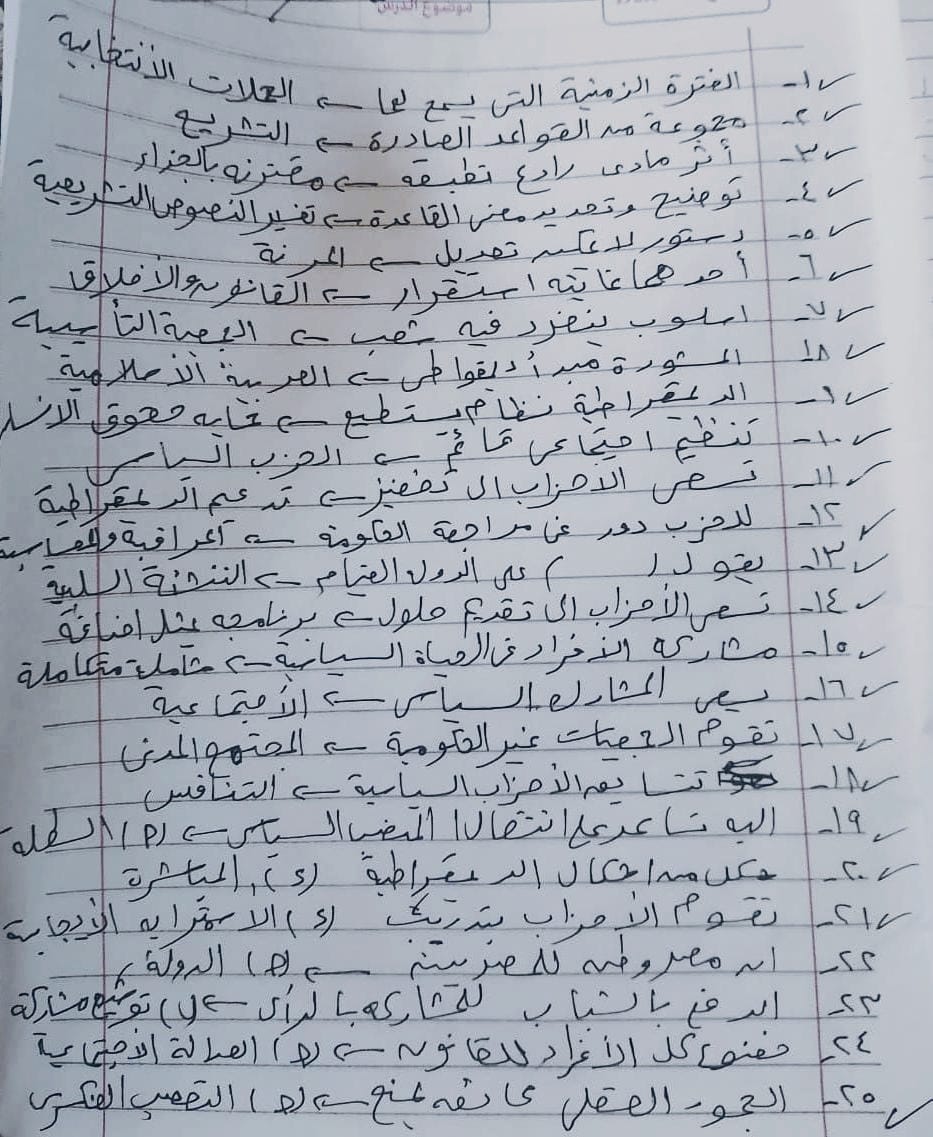 موضوع الدرس
١- الفترة الزمنية التي يسمح لها ← الحملات الأنتخابية
٢- مجموعة من القواعد الصادرة ← التشريع
٣- أثر مادى رادع تطبيقة ← مقترنه بالجزاء
٤- توضيح وتحديد معنى القاعدة ← تفسير النصوص التشريعية
٥- دستور لا يمكن تعديل ← المرنة
٦- أحدهما غايته استقرار ← القانون والأخلاق
٧- اسلوب ينفرد فيه شعب ← الجمعية التأسيسية
٨- المشورة مبدأ ديمقواطى ← العربية الأسلامية
٩- الديمقراطية نظام يستطيع ← حماية حقوق الانسا
١٠- تنظيم اجتماعى قائم ← الحزب السياسى
١١- تسعى الأحزاب الى تحفيز ← تدعيم الديمقراطية
١٢- للحزب دور فى مراجعة الحكومة ← المراقبة والمحاسبة
١٣- يقول ( ) على الدول القيام ← التنشئة السلمية
١٤- تسعى الأحزاب الى تقديم حلول ← برنامجه يمثل اضافة
١٥- مشاركة الأفراد فى الحياة السياسية ← شاملة متكاملة
١٦- يسعى المشارك السياسى ← الأجتماعية
١٧- تقوم الجمعيات غير الحكومية ← المجتمع المدنى
١٨- تتسابق الأحزاب السياسية ← التنافس
١٩- اليه تساعد على انتقال المنصب السياسى ← (P) السلطة
٢٠- شكل من اشكال الديمقراطية (د) المباشرة
٢١- تقوم الأحزاب بتدريبك (د) الاستمرارية الأيجابية
٢٢- ان معروضه للضريبة ← (ﻫ) الدولة
٢٣- الدفع بالشباب للمشاركه بالرأى ← (ب) توسيع مشاركة
٢٤- خضوع كل الأفراد للقانون ← (ﻫ) العدالة الأجتماعية
٢٥- الجمود العقلى عائقه يمنع ← (ﻫ) التعصب الفكرى